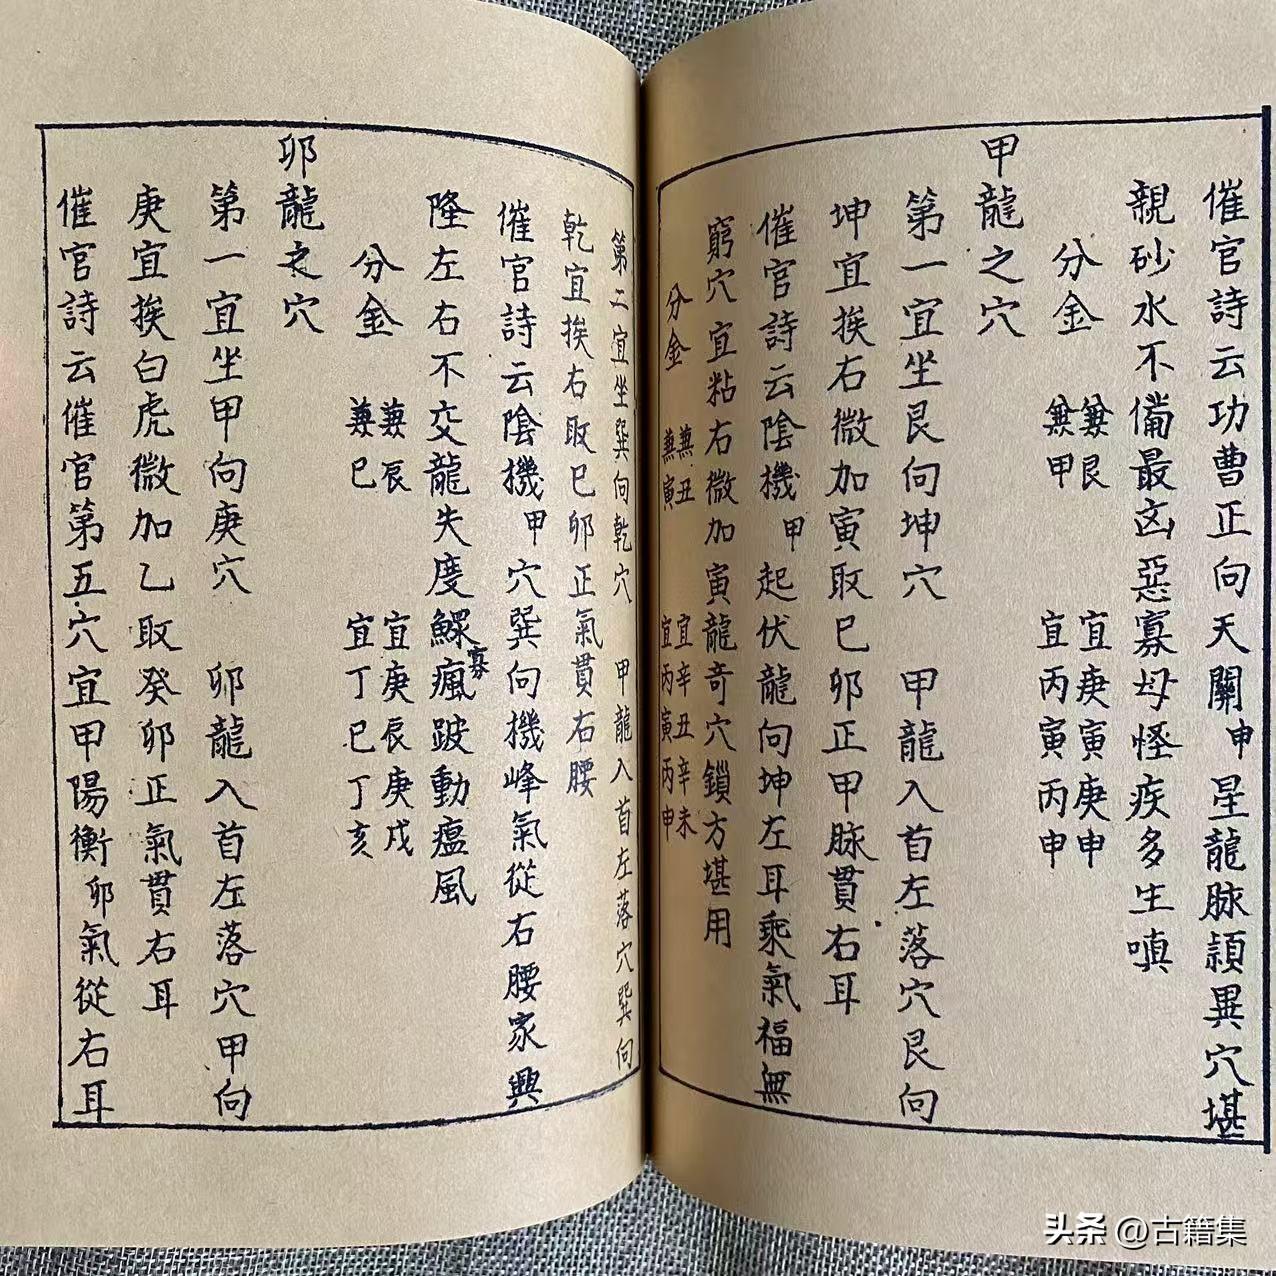 催官詩云功曹正向天關申星龍脉頴異穴堪
親砂水不備最凶惡寡母怪疾多生嗔
分金 兼艮 宜庚寅庚申
兼甲 宜丙寅丙申
甲龍之穴
第一宜坐艮向坤穴 甲龍入首左落穴艮向
坤宜挨右微加寅取巳卯正甲脉貫右耳
催官詩云陰機甲起伏龍向坤左耳乘氣福無
窮穴宜粘右微加寅龍奇穴鎖方堪用
分金 兼丑 宜辛丑辛未
兼寅 宜丙寅丙申
第二宜坐巽向乾穴 甲龍入首左落穴巽向
乾宜挨右取巳卯正氣貫右腰
催官詩云陰機甲穴巽向機峰氣從右腰家興
隆左右不交龍失度鰥寡瘋跛動瘟風
分金 兼辰 宜庚辰庚戌
兼巳 宜丁巳丁亥
卯龍之穴
第一宜坐甲向庚穴 卯龍入首左落穴甲向
庚宜挨白虎微加乙取癸卯正氣貫右耳
催官詩云催官第五穴宜甲陽衡卯氣從右耳
头条 @古籍集